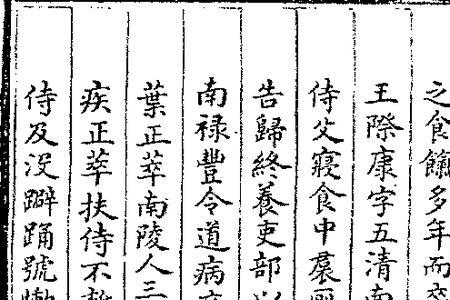 之食餼多年而
王際康字五清南
侍父寢食中裙
告歸終養吏部
南祿豐令道病
葉正萃南陵人三
疾正萃扶侍不
侍及没躃踊號慟